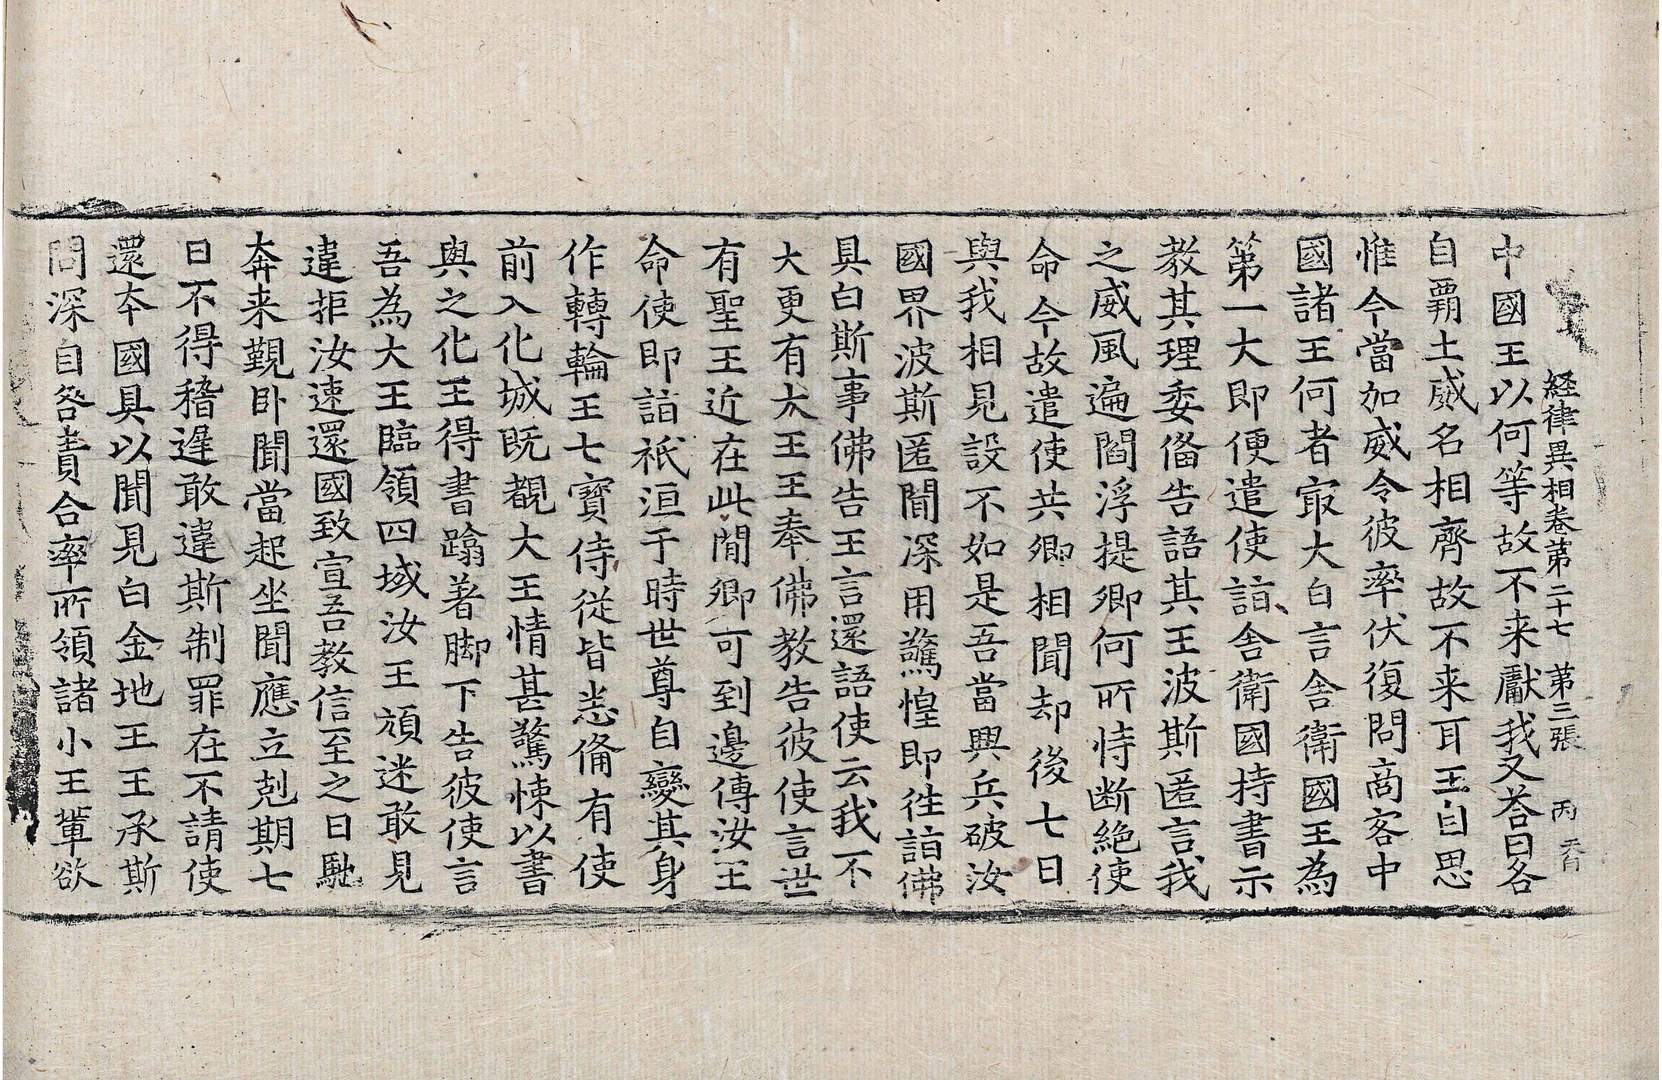 経律異相卷第二十七 第三張 丙
中國王以何等故不来獻我又荅曰各
自覇土威名相齊故不来耳王自思
惟今當加威令彼率伏復問商客中
國諸王何者㝡大白言舍衛國王為
第一大即便遣使詣舍衛國持書示
教其理委俻告語其王波斯匿言我
之威風遍閻浮提卿何所恃断絶使
命今故遣使共卿相聞却後七日
與我相見設不如是吾當興兵破汝
國界波斯匿聞深用驚惶即徃詣佛
具白斯事佛告王言還語使云我不
大更有大王王奉佛教告彼使言世
有聖王近在此間卿可到邊傳汝王
命使即詣祇洹于時世尊自變其身
作轉輪王七寶侍從皆悉俻有使
前入化城既覩大王情甚驚悚以書
與之化王得書蹹著脚下告彼使言
吾為大王臨領四域汝王頑迷敢見
違拒汝速還國致宣吾教信至之日馳
奔来覲卧聞當起坐聞應立剋期七
日不得稽遅敢違斯制罪在不請使
還本國具以聞見白金地王王承斯
問深自咎責合率所領諸小王輩欲